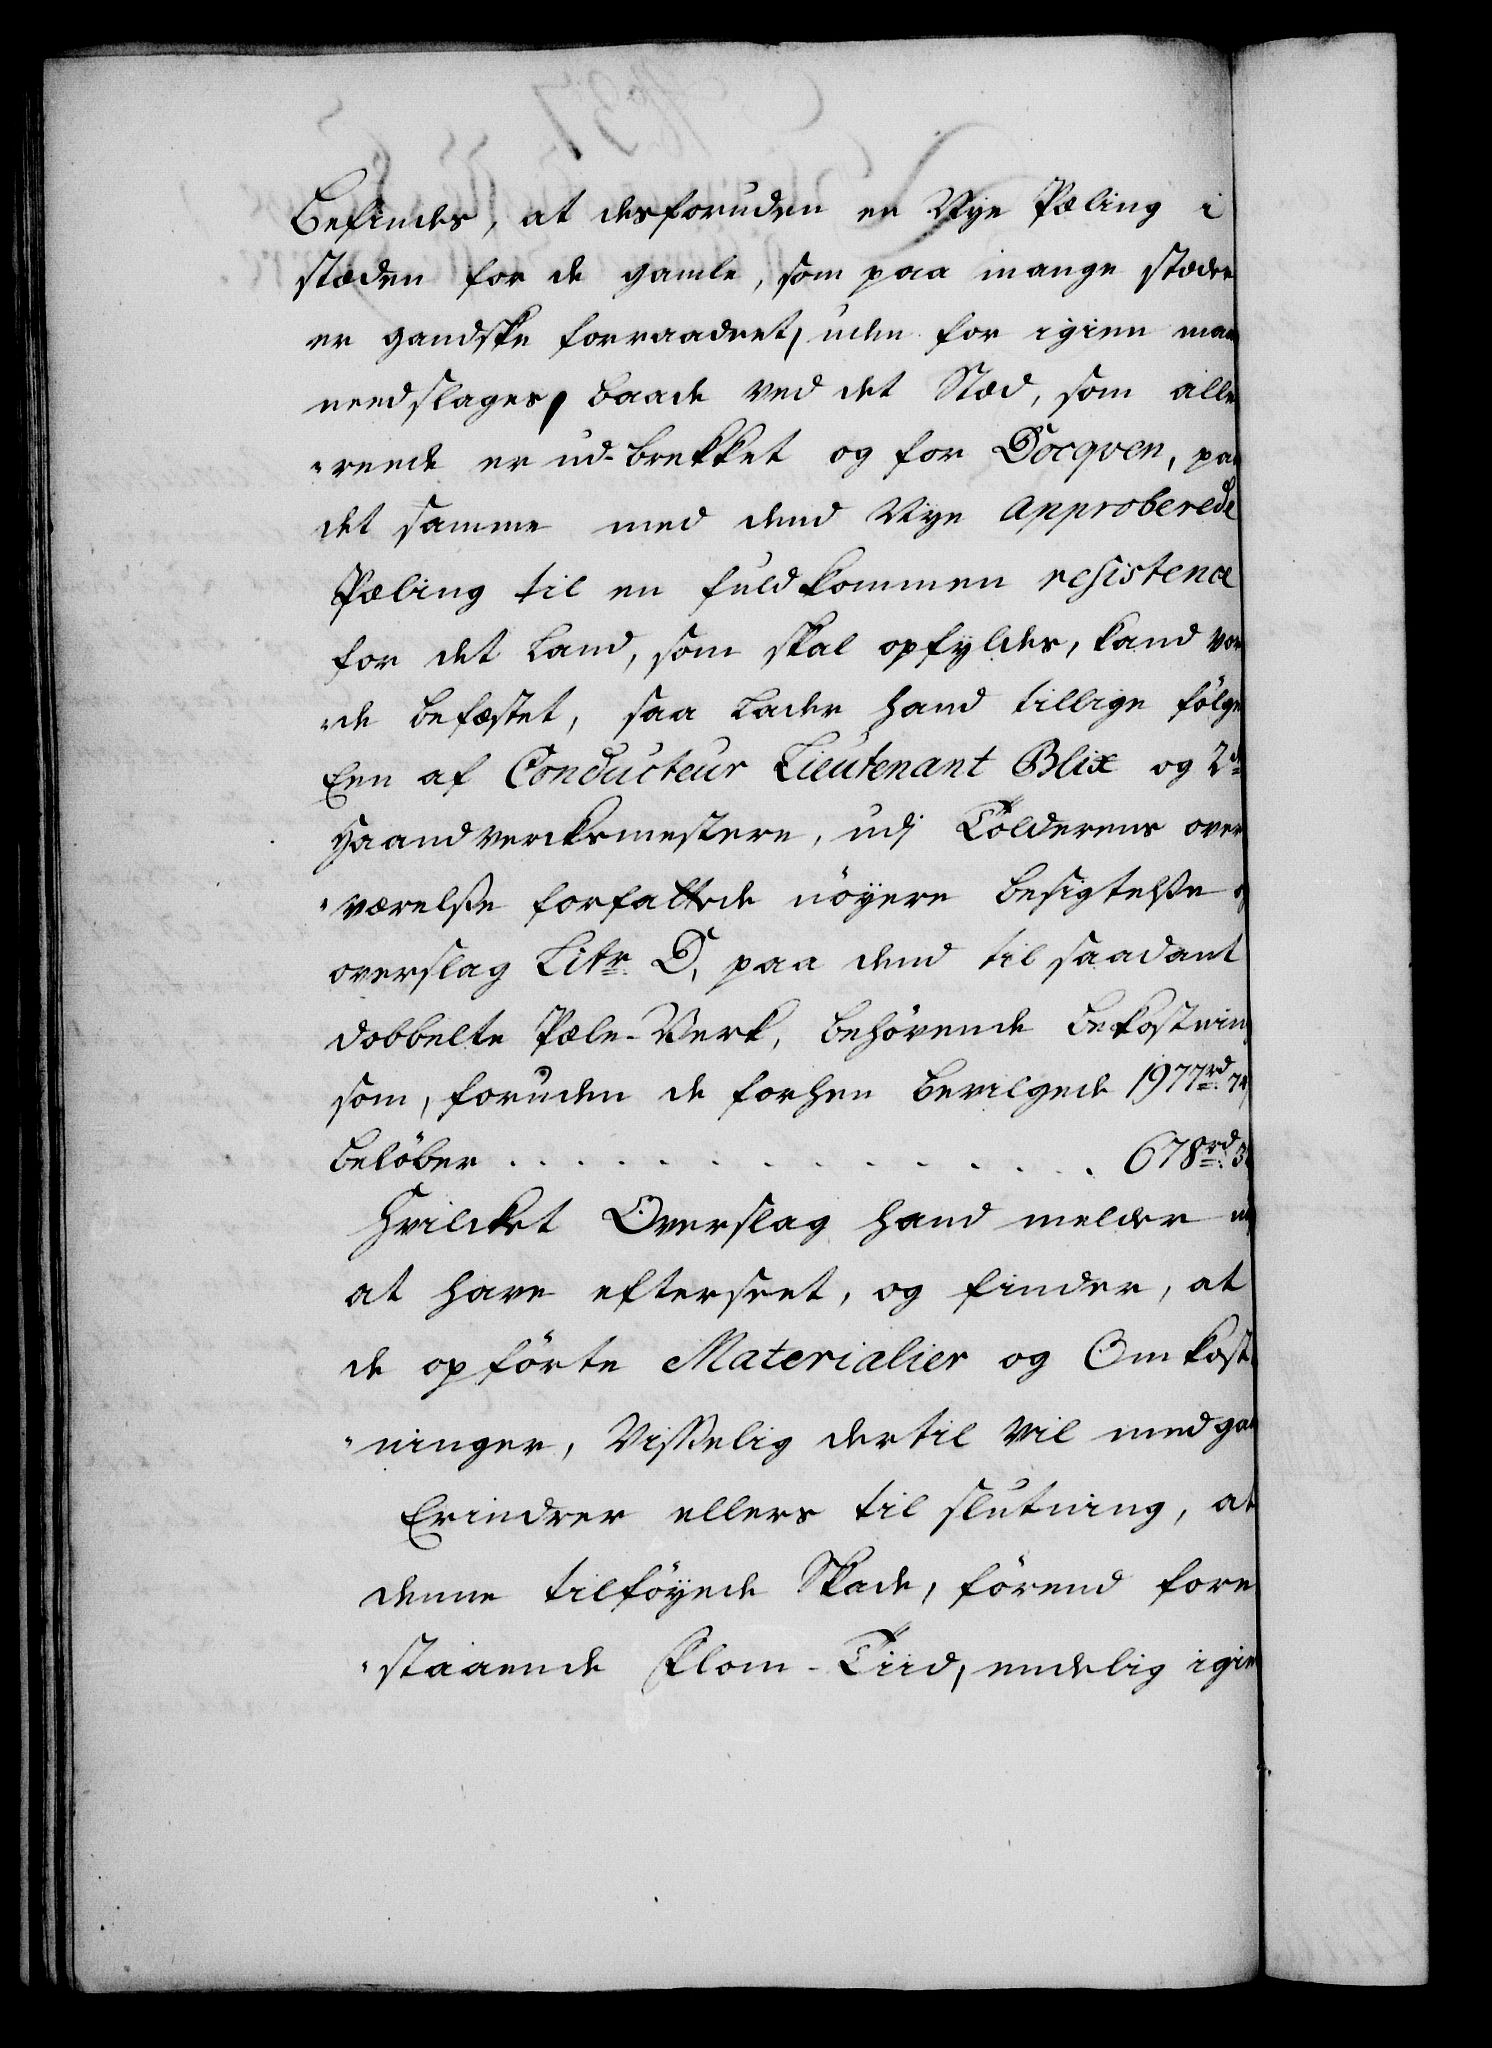 Befindes, at desforuden en Nye Pæling i
stæden for de gamle, som paa mange stæder
er gandske forraadnet, uden for igien maa
needslages, baade ved det Stæd, som alle
"reede er ud-brekket og for Docqven, paa
det samme med dend Nye Approberede
Pæling til en fuldkommen resistence
for det Land, som skal opfyldes, kand vor
"de befæstet, saa lader hand tillige følge
Een af Conducteur Lieutenant Blix og 2de
Haandvercksmestere, udj Tolderens over
"værelse forfattede nöyere besigtelse og
overslag Litr. D, paa dend til saadant
dobbelte Pæle-Verk, behörende bekostning
som, foruden de forhen bevilgede 1977 rd
belöber . . . . . . . . . . . . 678 rd
Hvilcket Overslag hand melder
at have efterseet, og finder, at
de opförte Materialier og Omkost
"ninger, Visselig dertil vil medgaa
Erindrer ellers til slutning, at
denne tilföyede Skade, förend fore
"staaende Flom-Tiid, endelig igien